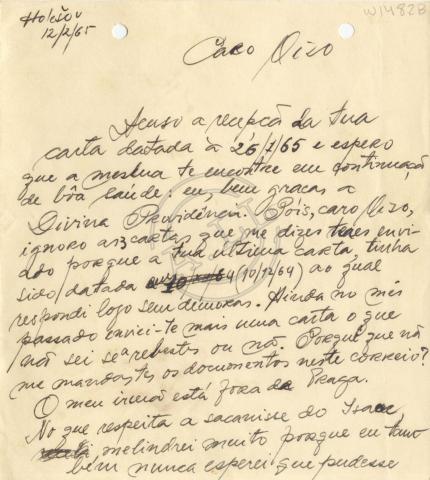 Holešov
12/2/65
W1482B
Caro Dizo
Acuso a recepçã da tua
carta datada à 26/1/65 e espero
que a mesma te encontre em continuaçã
de bôa saúde; eu, bem graças a
Divina Providência. Póis, caro Dizo,
ignoro as 3 cartas que me dizes teres envi-
ado porque a tua ultima carta, tinha
sido datada (10/12/64) ao qual
respondi logo sem demoras. Ainda no mês
passado enviei-te mais uma carta o que
nã sei se a recebestes ou nã. Porquê que nã
me mandastes os documentos neste correio?
O meu irmã está fora de Praga.
No que respeita a sacanisse do Isaac,
melindrei muito porque eu tam
bém nunca esperei que pudesse